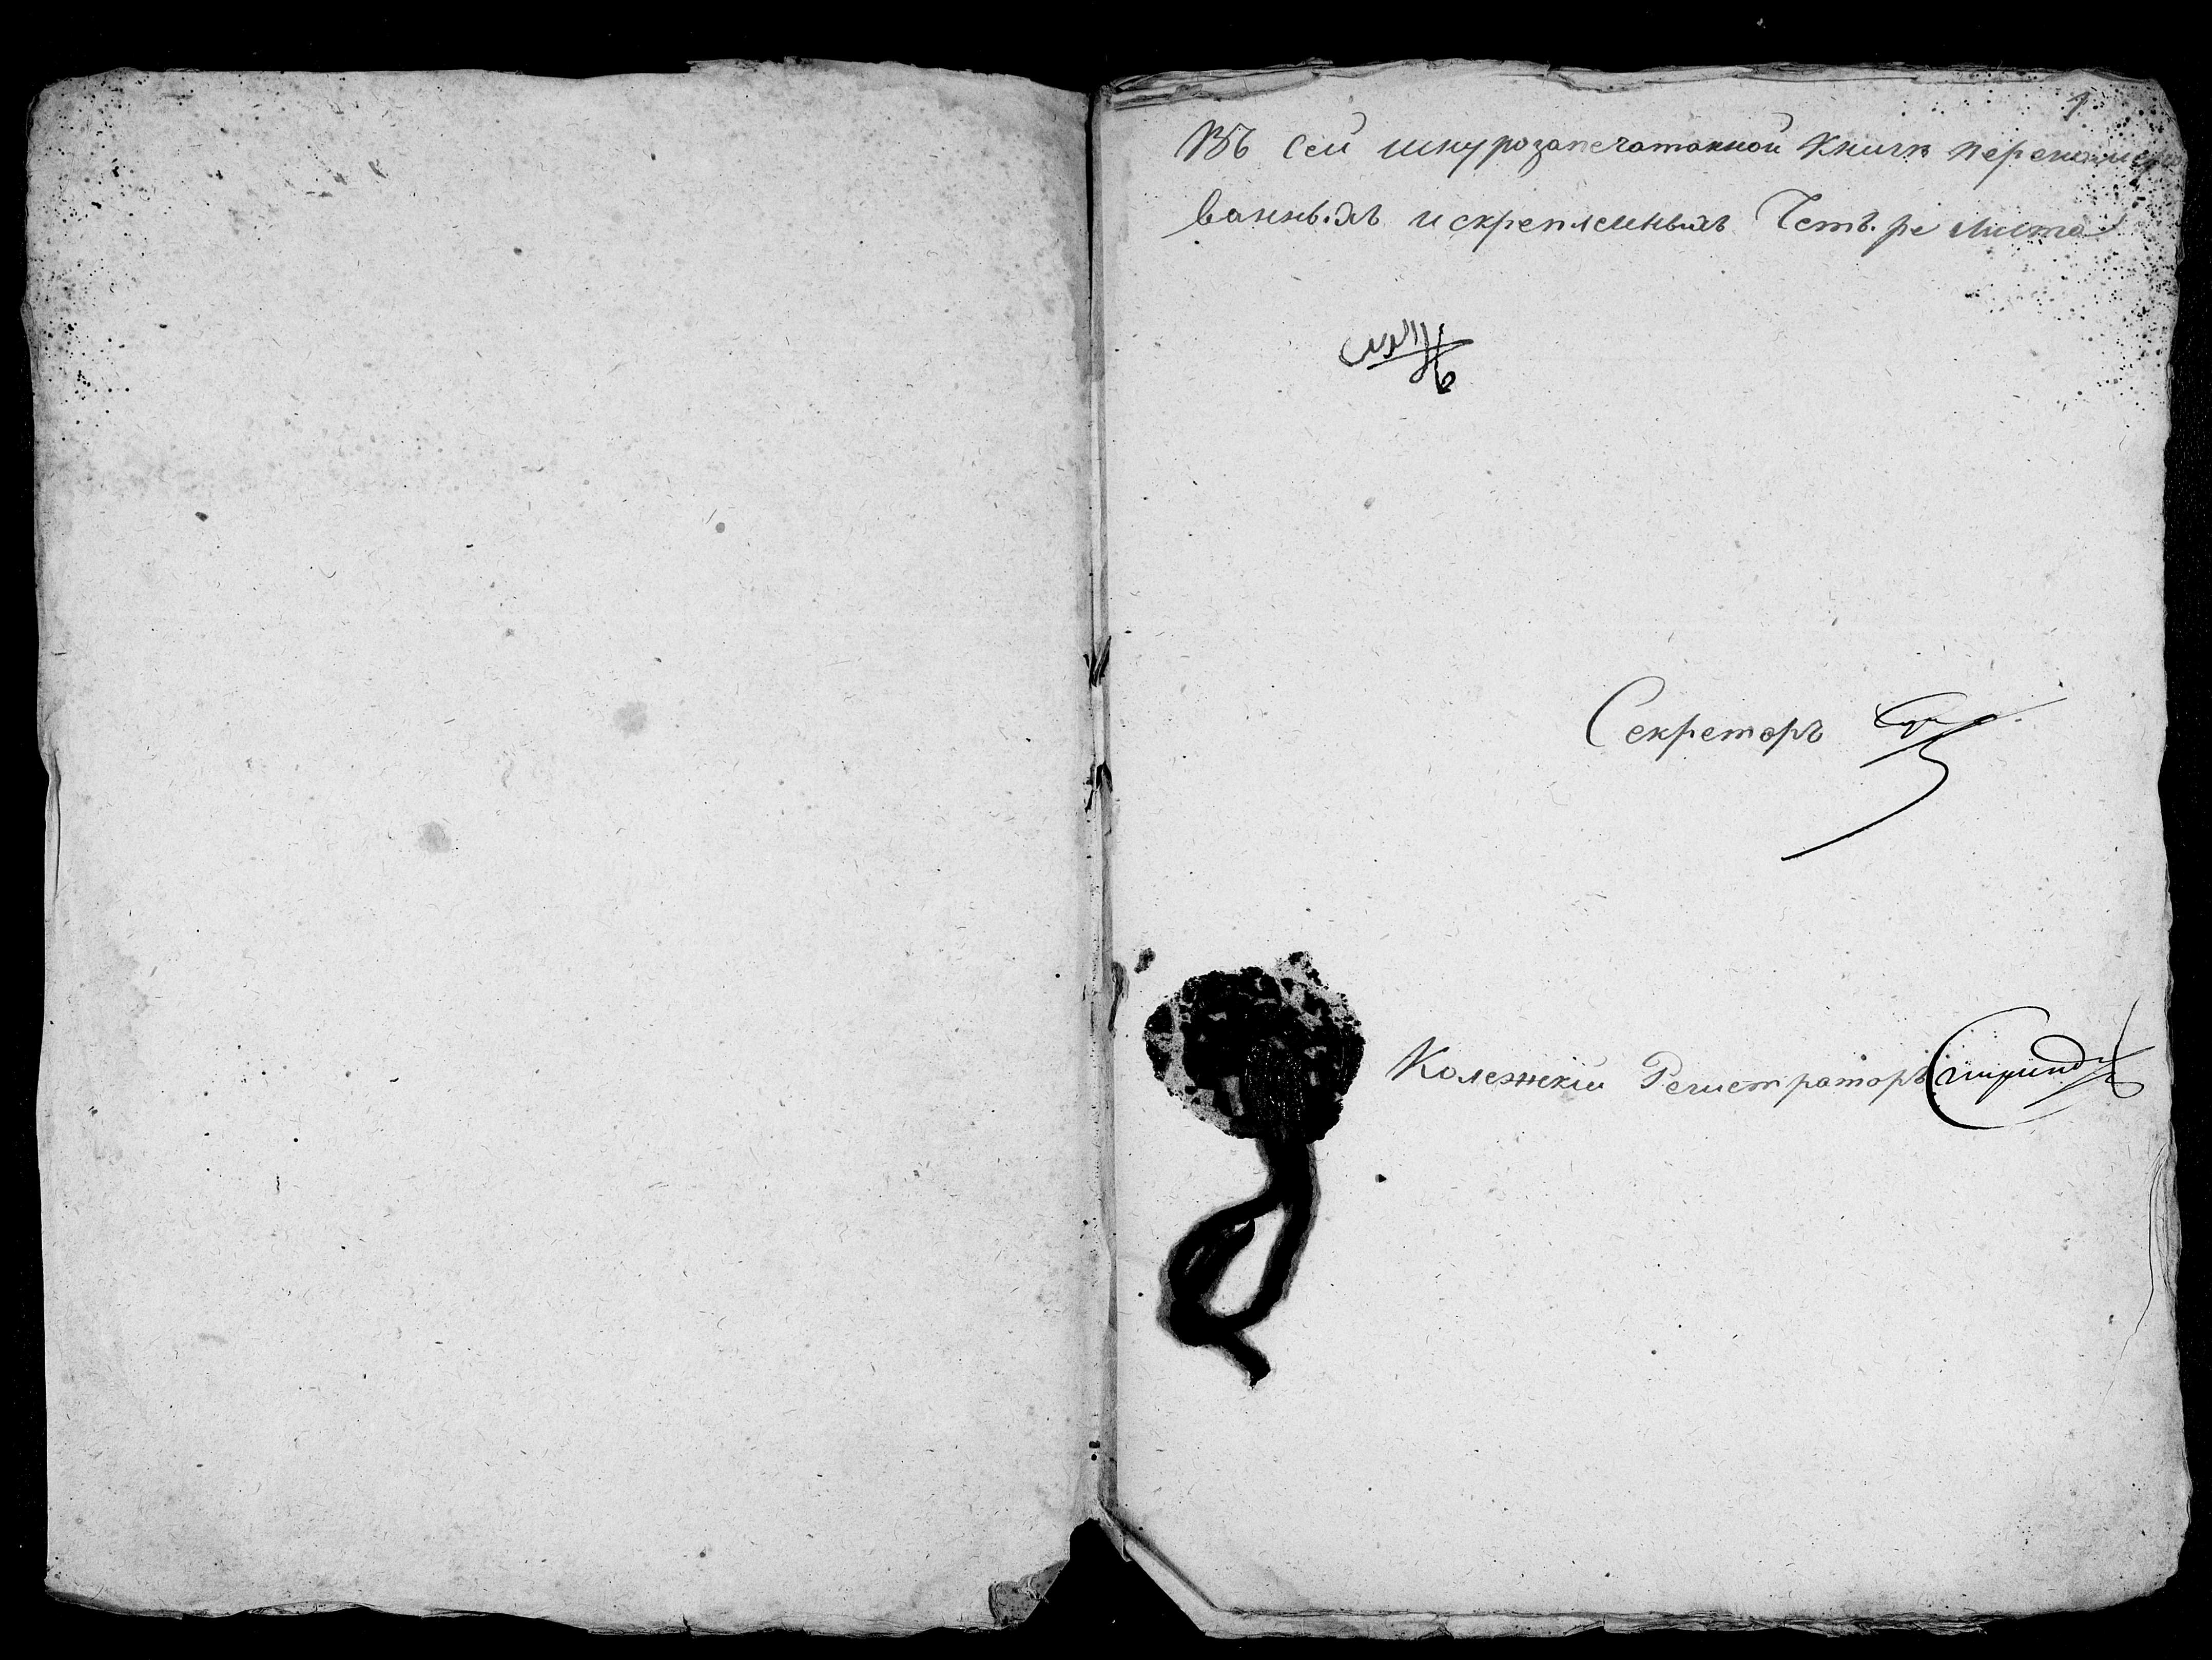 1
Въ сей шнурозапечатанной книге перенумеро
ванныхъ искрепленныхъ Четыре листа
Секретарь
Колежкій Регистраторъ